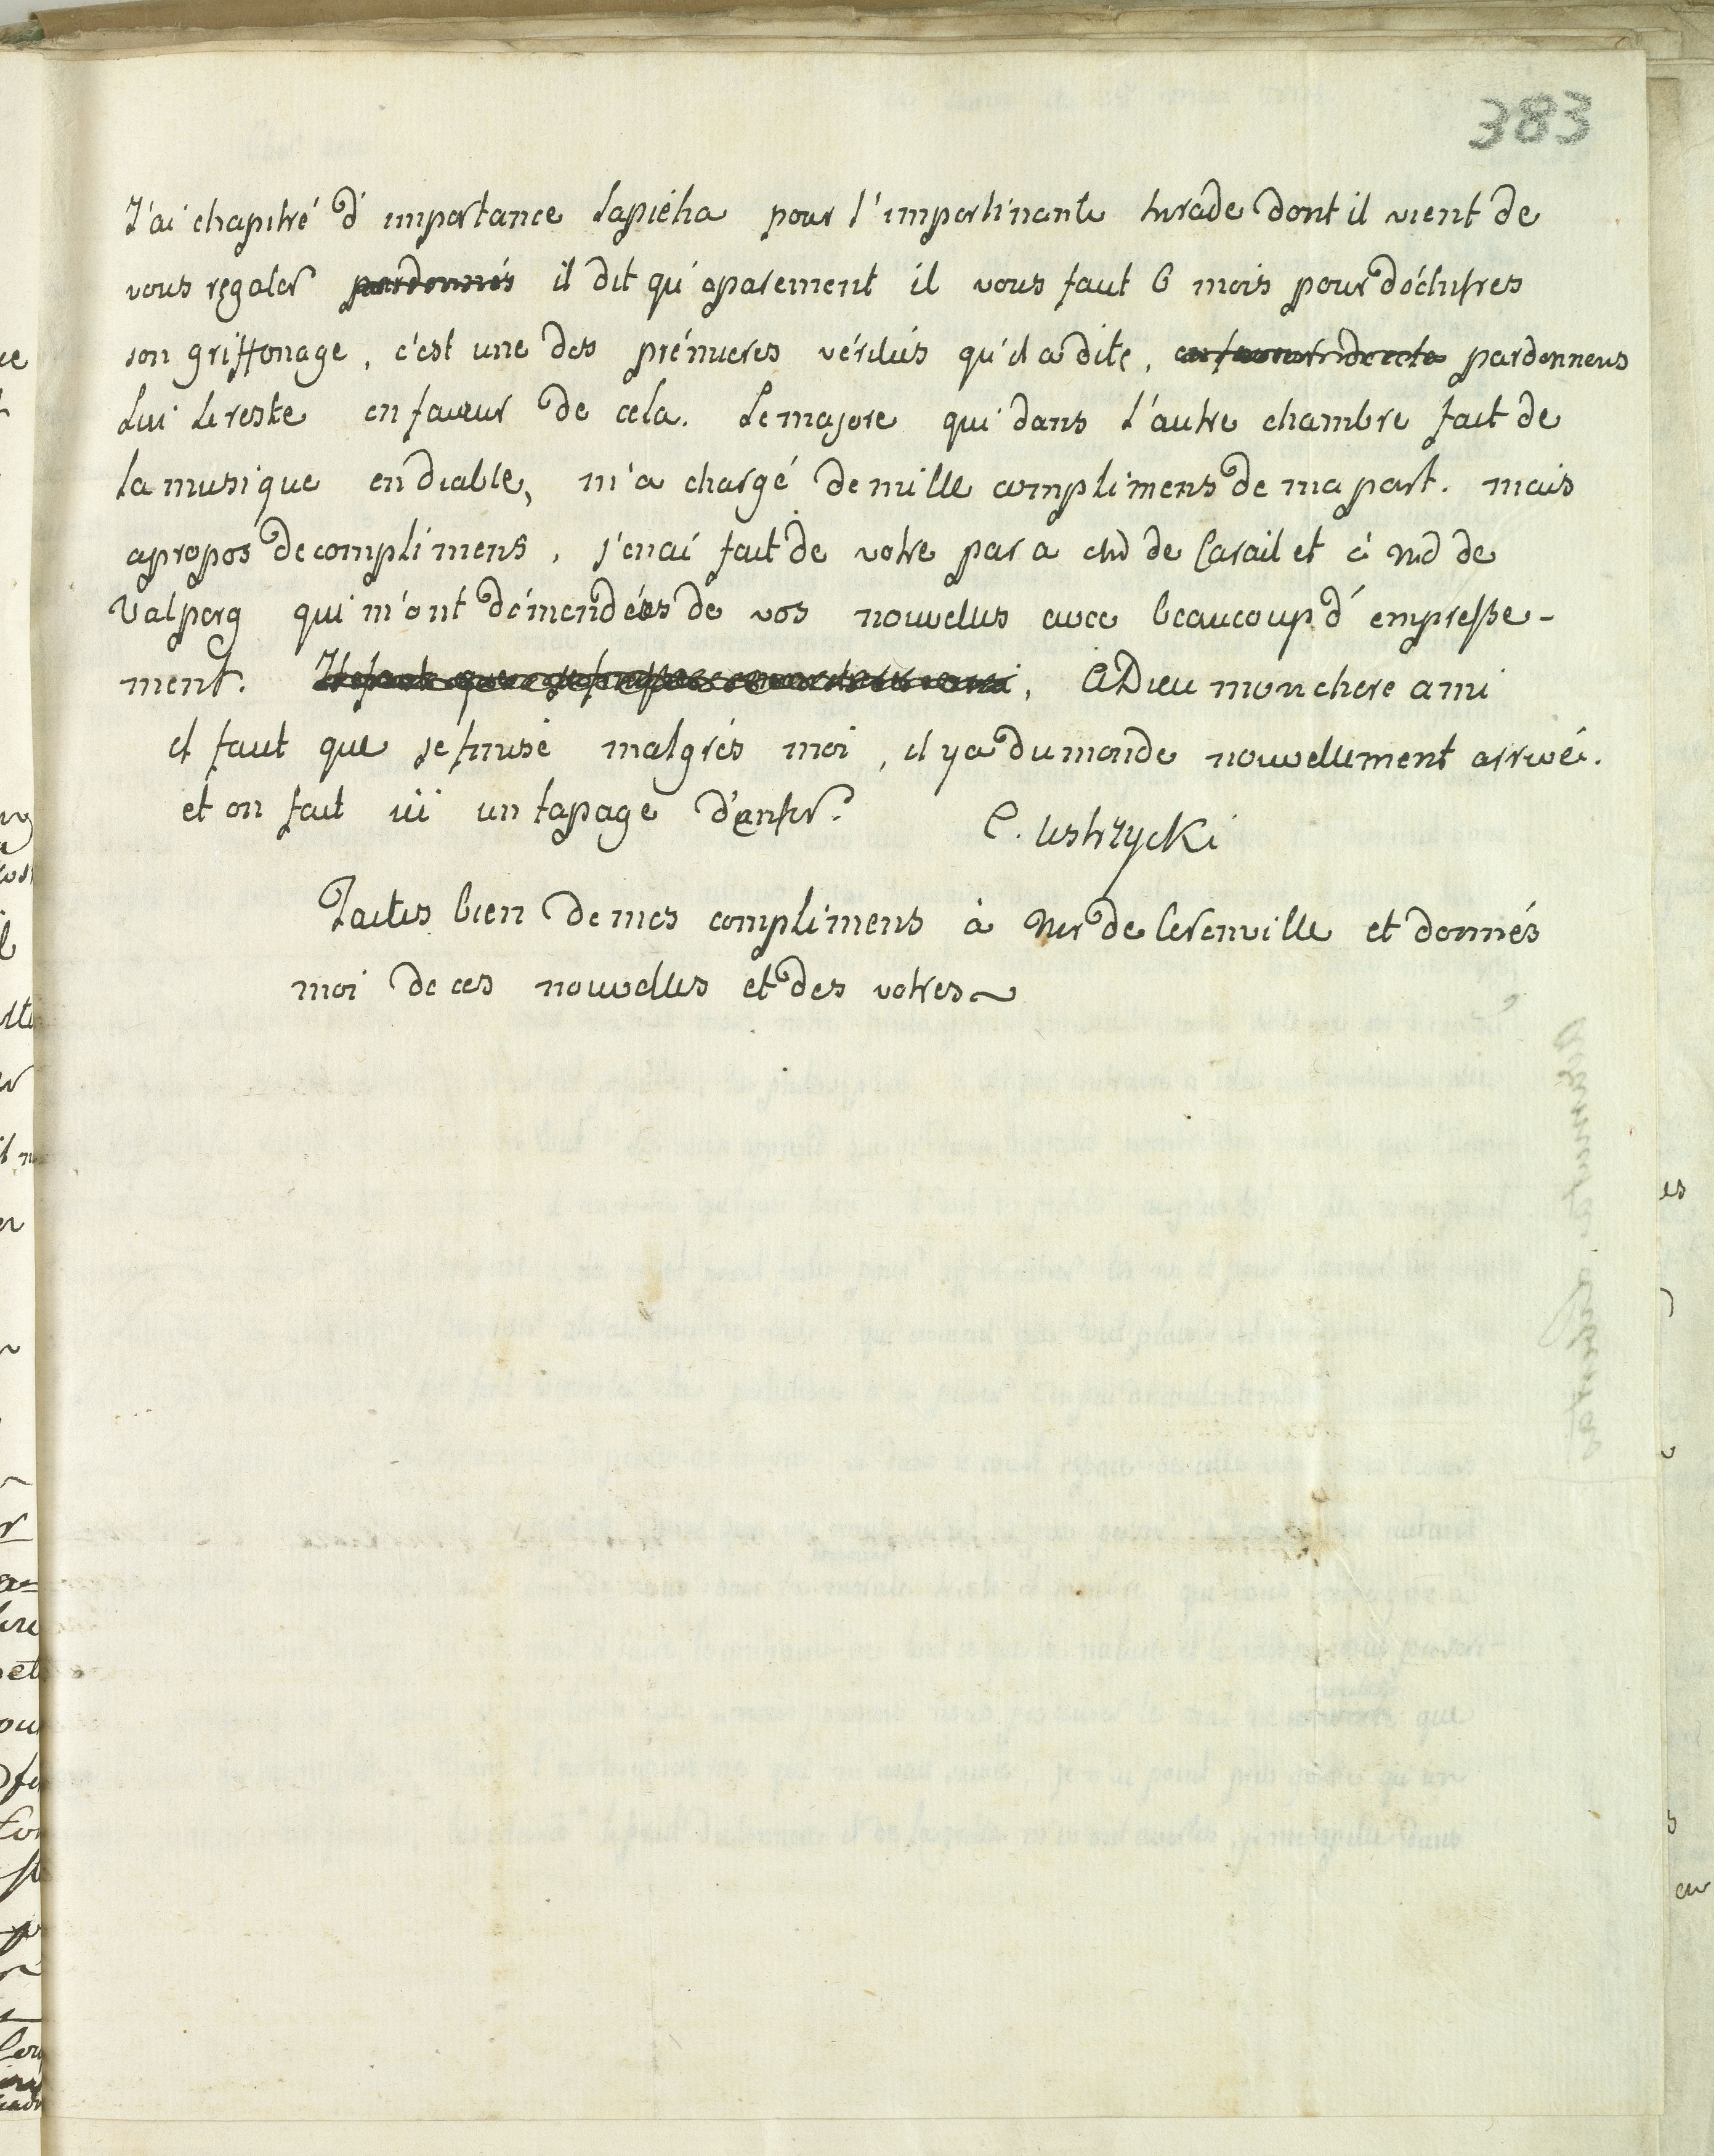 383
J'ai chapitré d'importance Sapieha pour l'impertinante tirade dont il vient de
vous regaler pardonnés il dit qu'aparement il vous faut 6 mois pour déchifres
son griffonage, c'est une des prémieres vérités qu'il a dite, pardonnens
Lui Le reste en faveur de cela. Le majore qui dans L'autre chambre fait de
La musique en diable, m'a chargé de mille complimens de ma part. mais
apropos de complimens, j'en ai fait de votre par a Md de Carail et à Md de
Valperg qui m'ont démendées de vos nouvelles avec beaucoup d'empresse-
ment. ADieu mon chere ami
il faut que je finise malgrés moi, il y a du monde nouvellement arrivé.
et on fait ici un tapage d'enfer.
C. Ustrzycki
Faites bien de mes complimens à Mr de Cerenville et donnés
moi de ces nouvelles et des votres